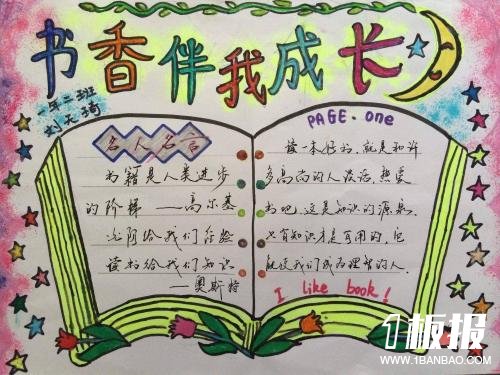 书香伴我成长
一年二班
刘天琦
名人名言
书籍是人类进步
的阶梯——高尔基
光阴给我们经验
读书给我们知识
——奥斯特
PAGE. one
读一本好书,就是和许
多高尚的人谈话,热爱
书吧,这是知识的源泉
只有知识才是可用的,它
能使我们成为理智的人.
I like book!
1板报
WWW.1BANBAO.COM